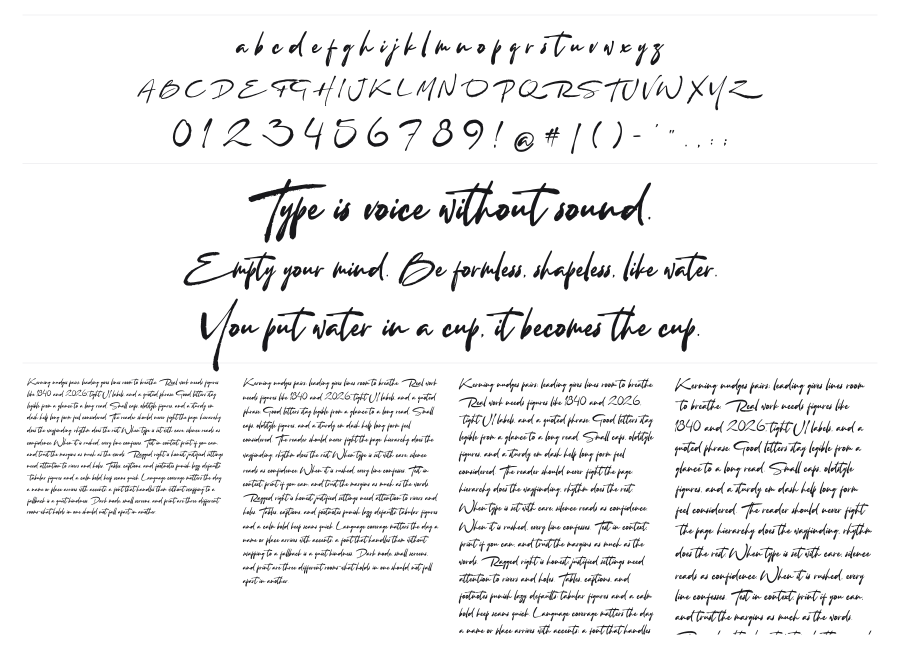 a b c d e f g h i j k l m n o p q r s t u v w x y z
A B C D E F G H I J K L M N O P Q R S T U V W X Y Z
0 1 2 3 4 5 6 7 8 9 ! @ # | ( ) - ' " . , ; :
Type is voice without sound.
Empty your mind. Be formless, shapeless, like water.
You put water in a cup, it becomes the cup.
Kerning nudges pairs; leading gives lines room to breathe. Real work needs figures
like 1840 and 2026, tight UI labels, and a quoted phrase. Good letters stay
legible from a glance to a long read. Small caps, oldstyle figures, and a sturdy em
dash help long form feel considered. The reader should never fight the page; hierarchy
does the wayfinding, rhythm does the rest. When type is set with care, silence reads as
confidence. When it is rushed, every line confesses. Test in context, print if you can,
and trust the margins as much as the words. Ragged right is honest; justified settings
need attention to rivers and holes. Tables, captions, and footnotes punish lazy defaults;
tabular figures and a calm bold keep scans quick. Language coverage matters the day
a name or place arrives with accents; a font that handles them without swapping to a
fallback is a quiet kindness. Dark mode, small screens, and print are three different
rooms; what holds in one should not fall apart in another.
Kerning nudges pairs; leading gives lines room to breathe. Real work
needs figures like 1840 and 2026, tight UI labels, and a quoted
phrase. Good letters stay legible from a glance to a long read. Small
caps, oldstyle figures, and a sturdy em dash help long form feel
considered. The reader should never fight the page; hierarchy does the
wayfinding, rhythm does the rest. When type is set with care, silence
reads as confidence. When it is rushed, every line confesses. Test in
context, print if you can, and trust the margins as much as the words.
Ragged right is honest; justified settings need attention to rivers and
holes. Tables, captions, and footnotes punish lazy defaults; tabular figures
and a calm bold keep scans quick. Language coverage matters the day a
name or place arrives with accents; a font that handles them without
swapping to a fallback is a quiet kindness. Dark mode, small screens,
and print are three different rooms; what holds in one should not fall
apart in another.
Kerning nudges pairs; leading gives lines room to breathe.
Real work needs figures like 1840 and 2026,
tight UI labels, and a quoted phrase. Good letters stay
legible from a glance to a long read. Small caps, oldstyle
figures, and a sturdy em dash help long form feel
considered. The reader should never fight the page;
hierarchy does the wayfinding, rhythm does the rest.
When type is set with care, silence reads as confidence.
When it is rushed, every line confesses. Test in context,
print if you can, and trust the margins as much as the
words. Ragged right is honest; justified settings need
attention to rivers and holes. Tables, captions, and
footnotes punish lazy defaults; tabular figures and a calm
bold keep scans quick. Language coverage matters the day
a name or place arrives with accents; a font that handles
Kerning nudges pairs; leading gives lines room
to breathe. Real work needs figures like
1840 and 2026, tight UI labels, and a
quoted phrase. Good letters stay legible from a
glance to a long read. Small caps, oldstyle
figures, and a sturdy em dash help long form
feel considered. The reader should never fight
the page; hierarchy does the wayfinding, rhythm
does the rest. When type is set with care, silence
reads as confidence. When it is rushed, every
line confesses. Test in context, print if you can,
and trust the margins as much as the words.